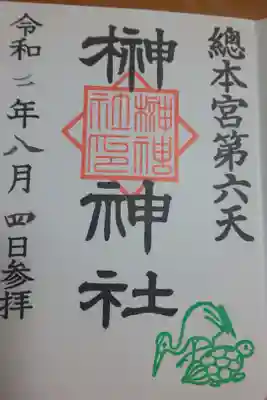 總本宮第六天
榊神社
榊神社印
令和二年八月四日参拝